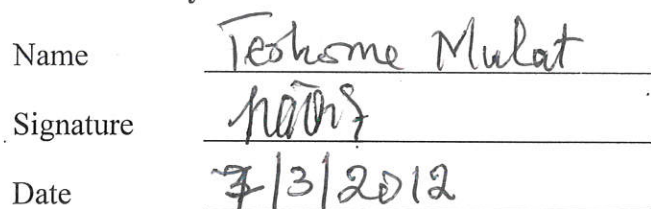 Name Teshome Mulat
Signature
Date 7/3/2012